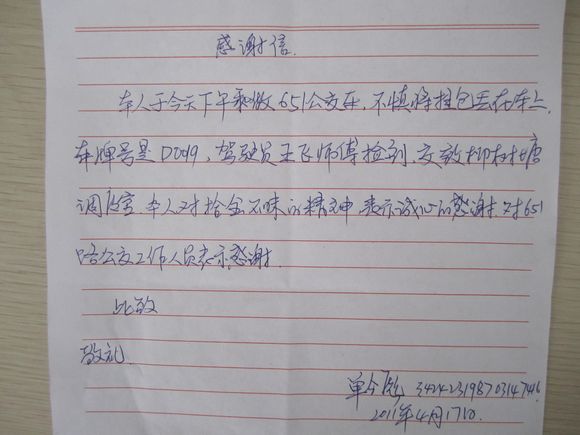 感谢信.
本人于今天下午乘做651公交车,不慎将挂包丢在车上,
车牌号是D099,驾驶员王飞师傅捡到,交致柳村
调度室,本人对拾金不昧的精神,表示诚心的感谢,对651
路公交工作人员表示感谢.
此致
敬礼
单 342423198703147416
2011年4月17日.